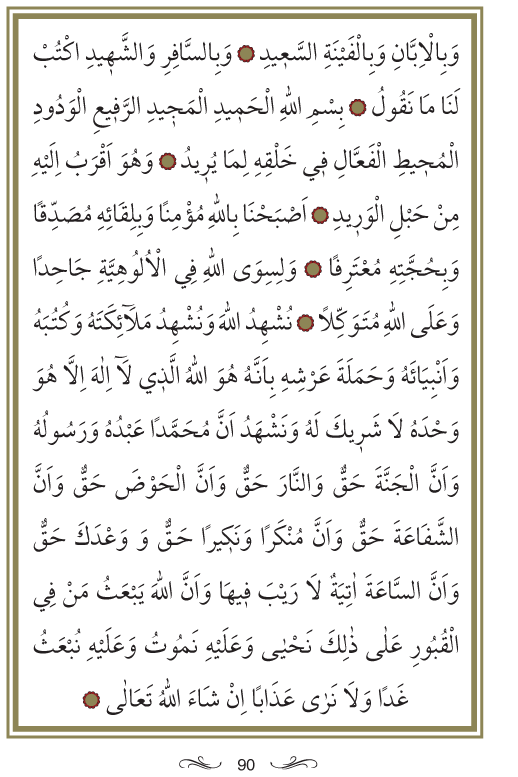 وَبِالْاِبَّانِ وَبِالْفَيْنَةِ السَّعٖيدِ ۞ وَبِالسَّافِرِ وَالشَّهٖيدِ اكْتُبْ
لَنَا مَا نَقُولُ ۞ بِسْمِ اللهِ الْحَمٖيدِ الْمَجٖيدِ الرَّفٖيعِ الْوَدُودِ
الْمُحٖيطِ الْفَعَّالِ فٖي خَلْقِهٖ لِمَا يُرٖيدُ ۞ وَهُوَ اَقْرَبُ اِلَيْهِ
مِنْ حَبْلِ الْوَرٖيدِ ۞ اَصْبَحْنَا بِاللهِ مُؤْمِنًا وَبِلِقَائِهٖ مُصَدِّقًا
وَبِحُجَّتِهٖ مُعْتَرِفًا ۞ وَلِسِوَى اللهِ فِي الْاُلُوهِيَّةِ جَاحِدًا
وَعَلَى اللهِ مُتَوَكِّلًا ۞ نُشْهِدُ اللهَ وَنُشْهِدُ مَلَآئِكَتَهُ وَكُتُبَهُ
وَاَنْبِيَائَهُ وَحَمَلَةَ عَرْشِهٖ بِاَنَّهُ هُوَ اللهُ الَّذٖي لَآ اِلٰهَ اِلَّا هُوَ
وَحْدَهُ لَا شَرٖيكَ لَهُ وَنَشْهَدُ اَنَّ مُحَمَّدًا عَبْدُهُ وَرَسُولُهُ
وَاَنَّ الْجَنَّةَ حَقٌّ وَالنَّارَ حَقٌّ وَاَنَّ الْحَوْضَ حَقٌّ وَاَنَّ
الشَّفَاعَةَ حَقٌّ وَاَنَّ مُنْكَرًا وَنَكٖيرًا حَقٌّ وَ وَعْدَكَ حَقٌّ
وَاَنَّ السَّاعَةَ اٰتِيَةٌ لَا رَيْبَ فٖيهَا وَاَنَّ اللهَ يَبْعَثُ مَنْ فِي
الْقُبُورِ عَلٰى ذٰلِكَ نَحْيٰى وَعَلَيْهِ نَمُوتُ وَعَلَيْهِ نُبْعَثُ
غَدًا وَلَا نَرٰى عَذَابًا اِنْ شَاءَ اللهُ تَعَالٰى ۞
90